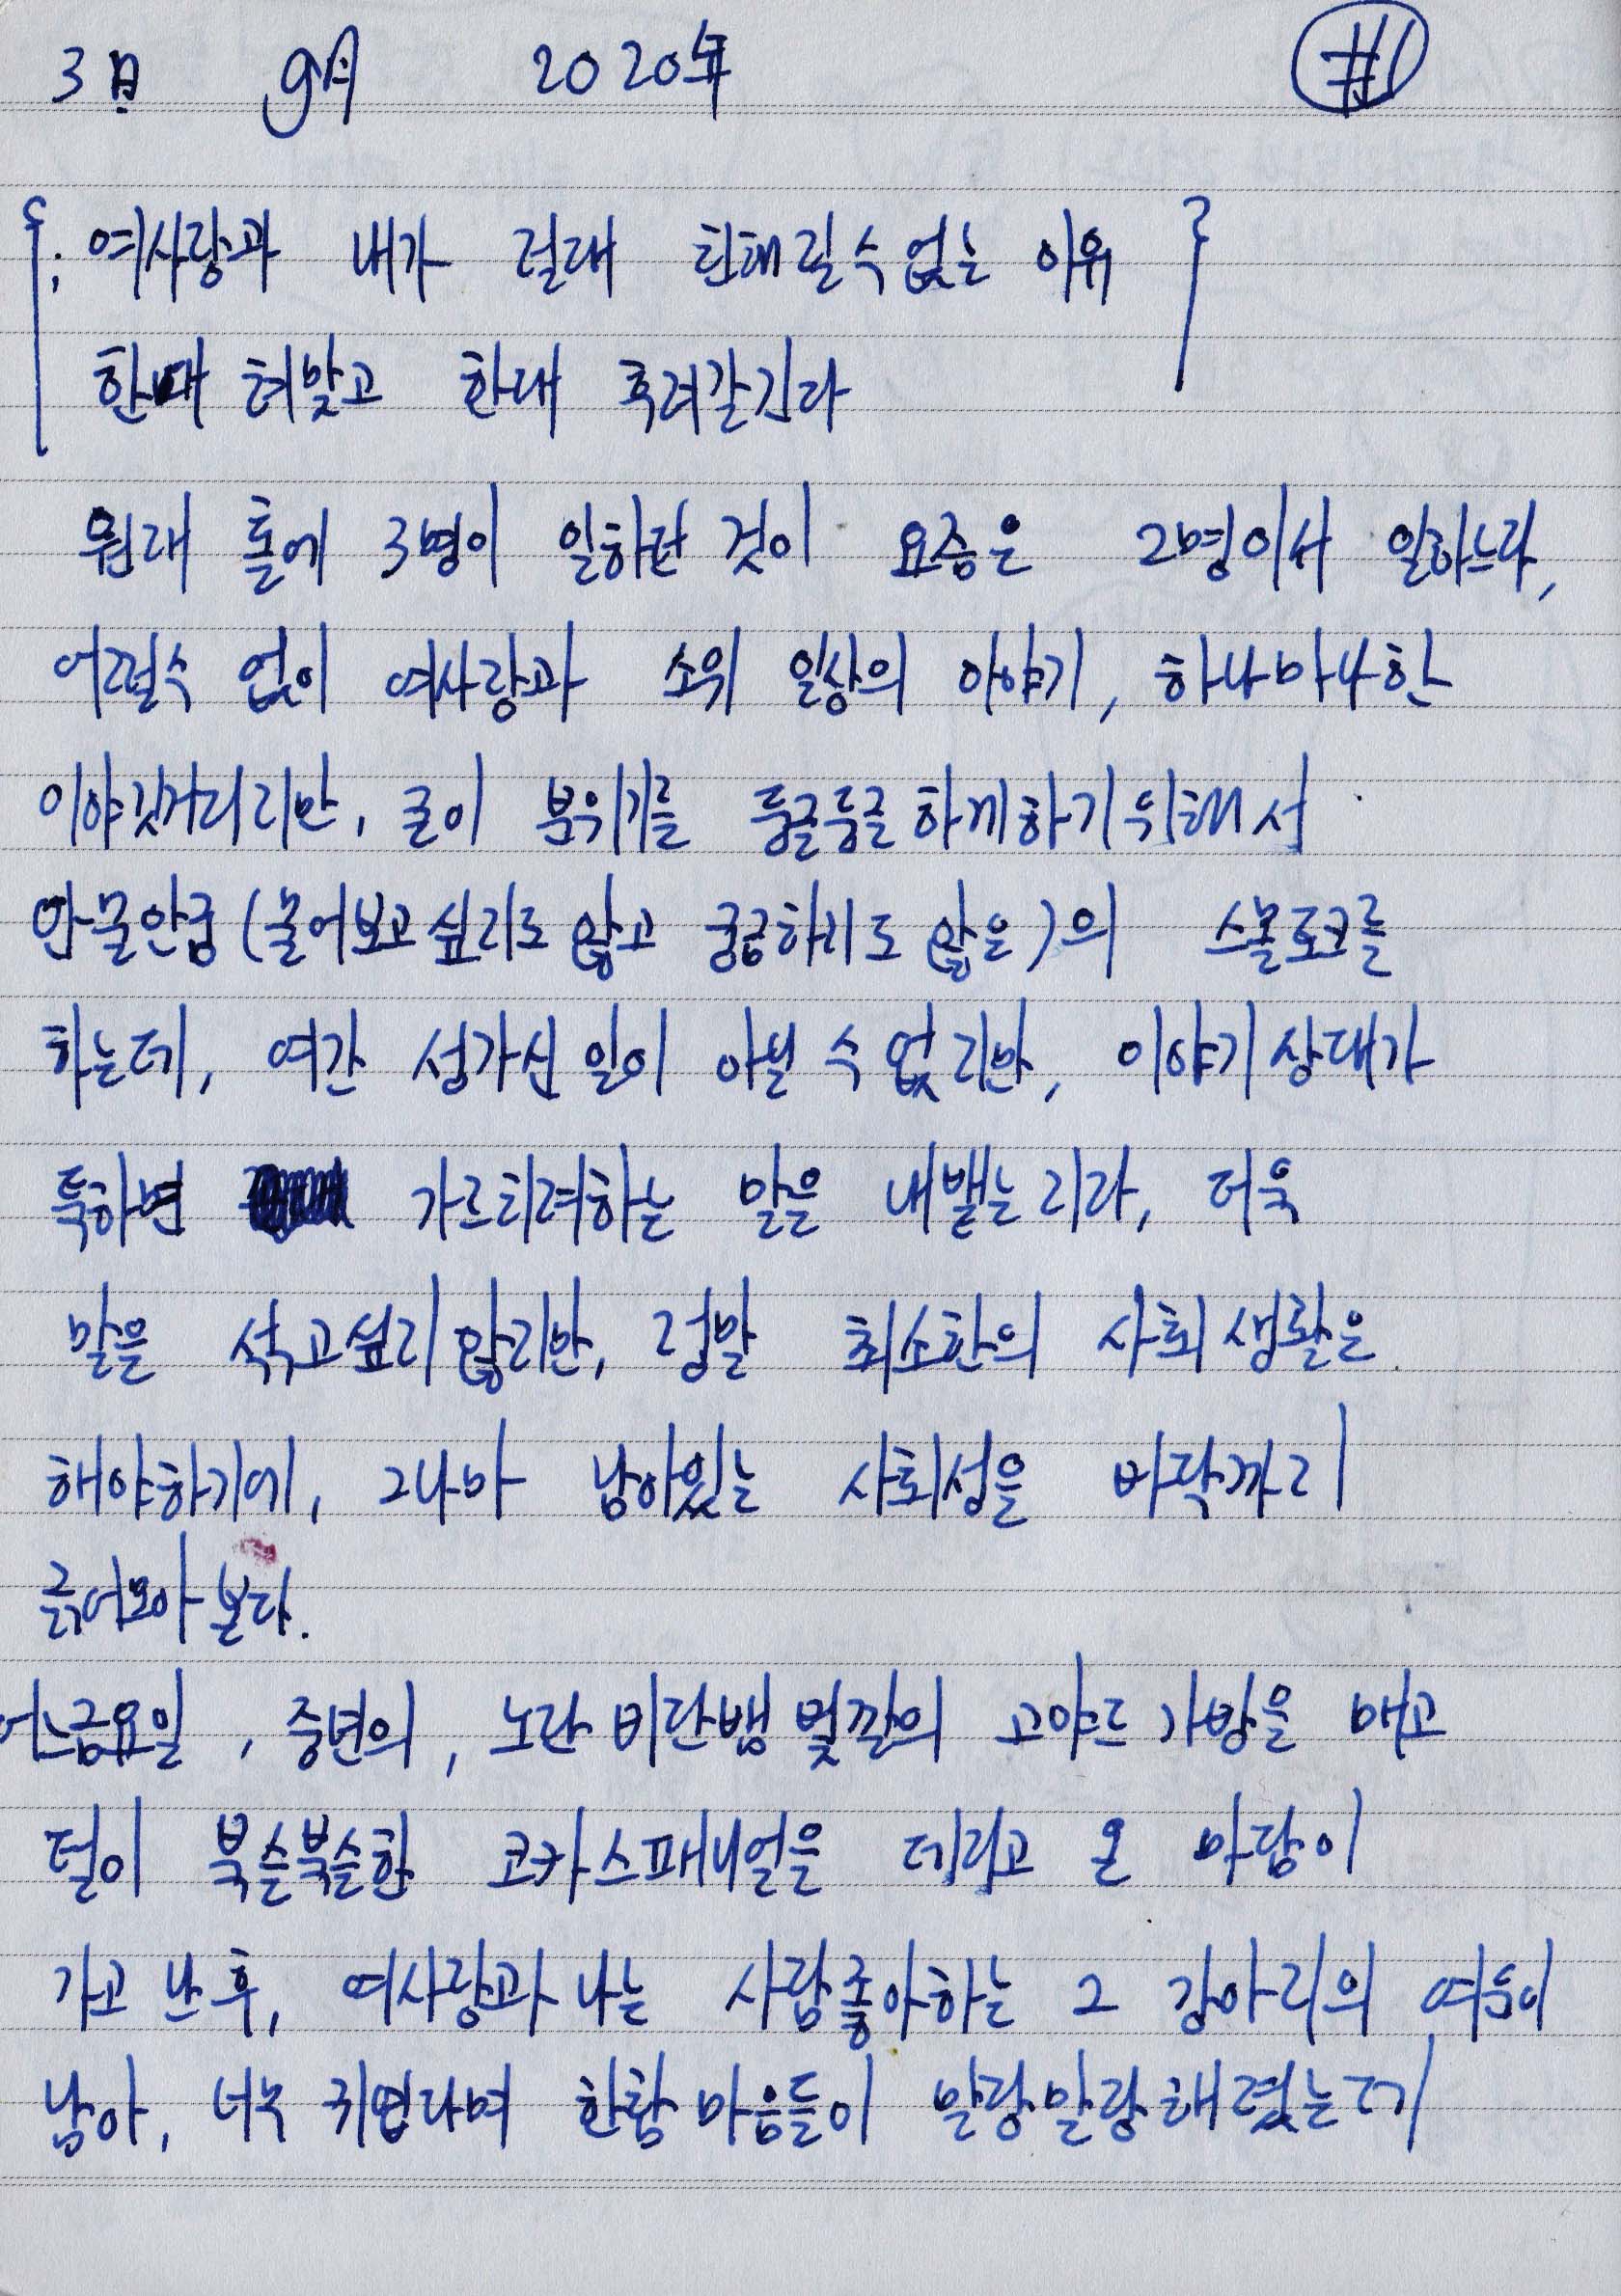 3日 9月 2020年 #1
{; 여사장과 내가 절대 친해질수없는 이유 }
한대 쳐맞고 한대 후려갈긴다
원래 홀에 3명이 일하던 것이 요즘은 2명이서 일하느라,
어쩔수 없이 여사장과 소위 일상의 이야기, 하나마나한
이야깃거리지만, 굳이 분위기를 둥글둥글하게하기위해서
안물안궁(물어보고싶지도 않고 궁금하지도 않은)의 스몰토크를
하는데, 여간 성가신 일이 아닐 수 없지만, 이야기상대가
툭하면 가르치려하는 말을 내뱉는지라, 더욱
말을 섞고싶지않지만, 정말 최소한의 사회생활은
해야하기에, 그나마 남아있는 사회성을 바닥까지
긁어모아 본다.
어느금요일, 중년의, 노란 비단뱀 빛깔의 고야드 가방을 매고
털이 북슬북슬한 코카스패니얼을 데리고 온 마담이
가고 난 후, 여사장과 나는 사람좋아하는 그 강아지의 여운이
남아, 너무 귀엽다며 한참 마음들이 말랑말랑해졌는데